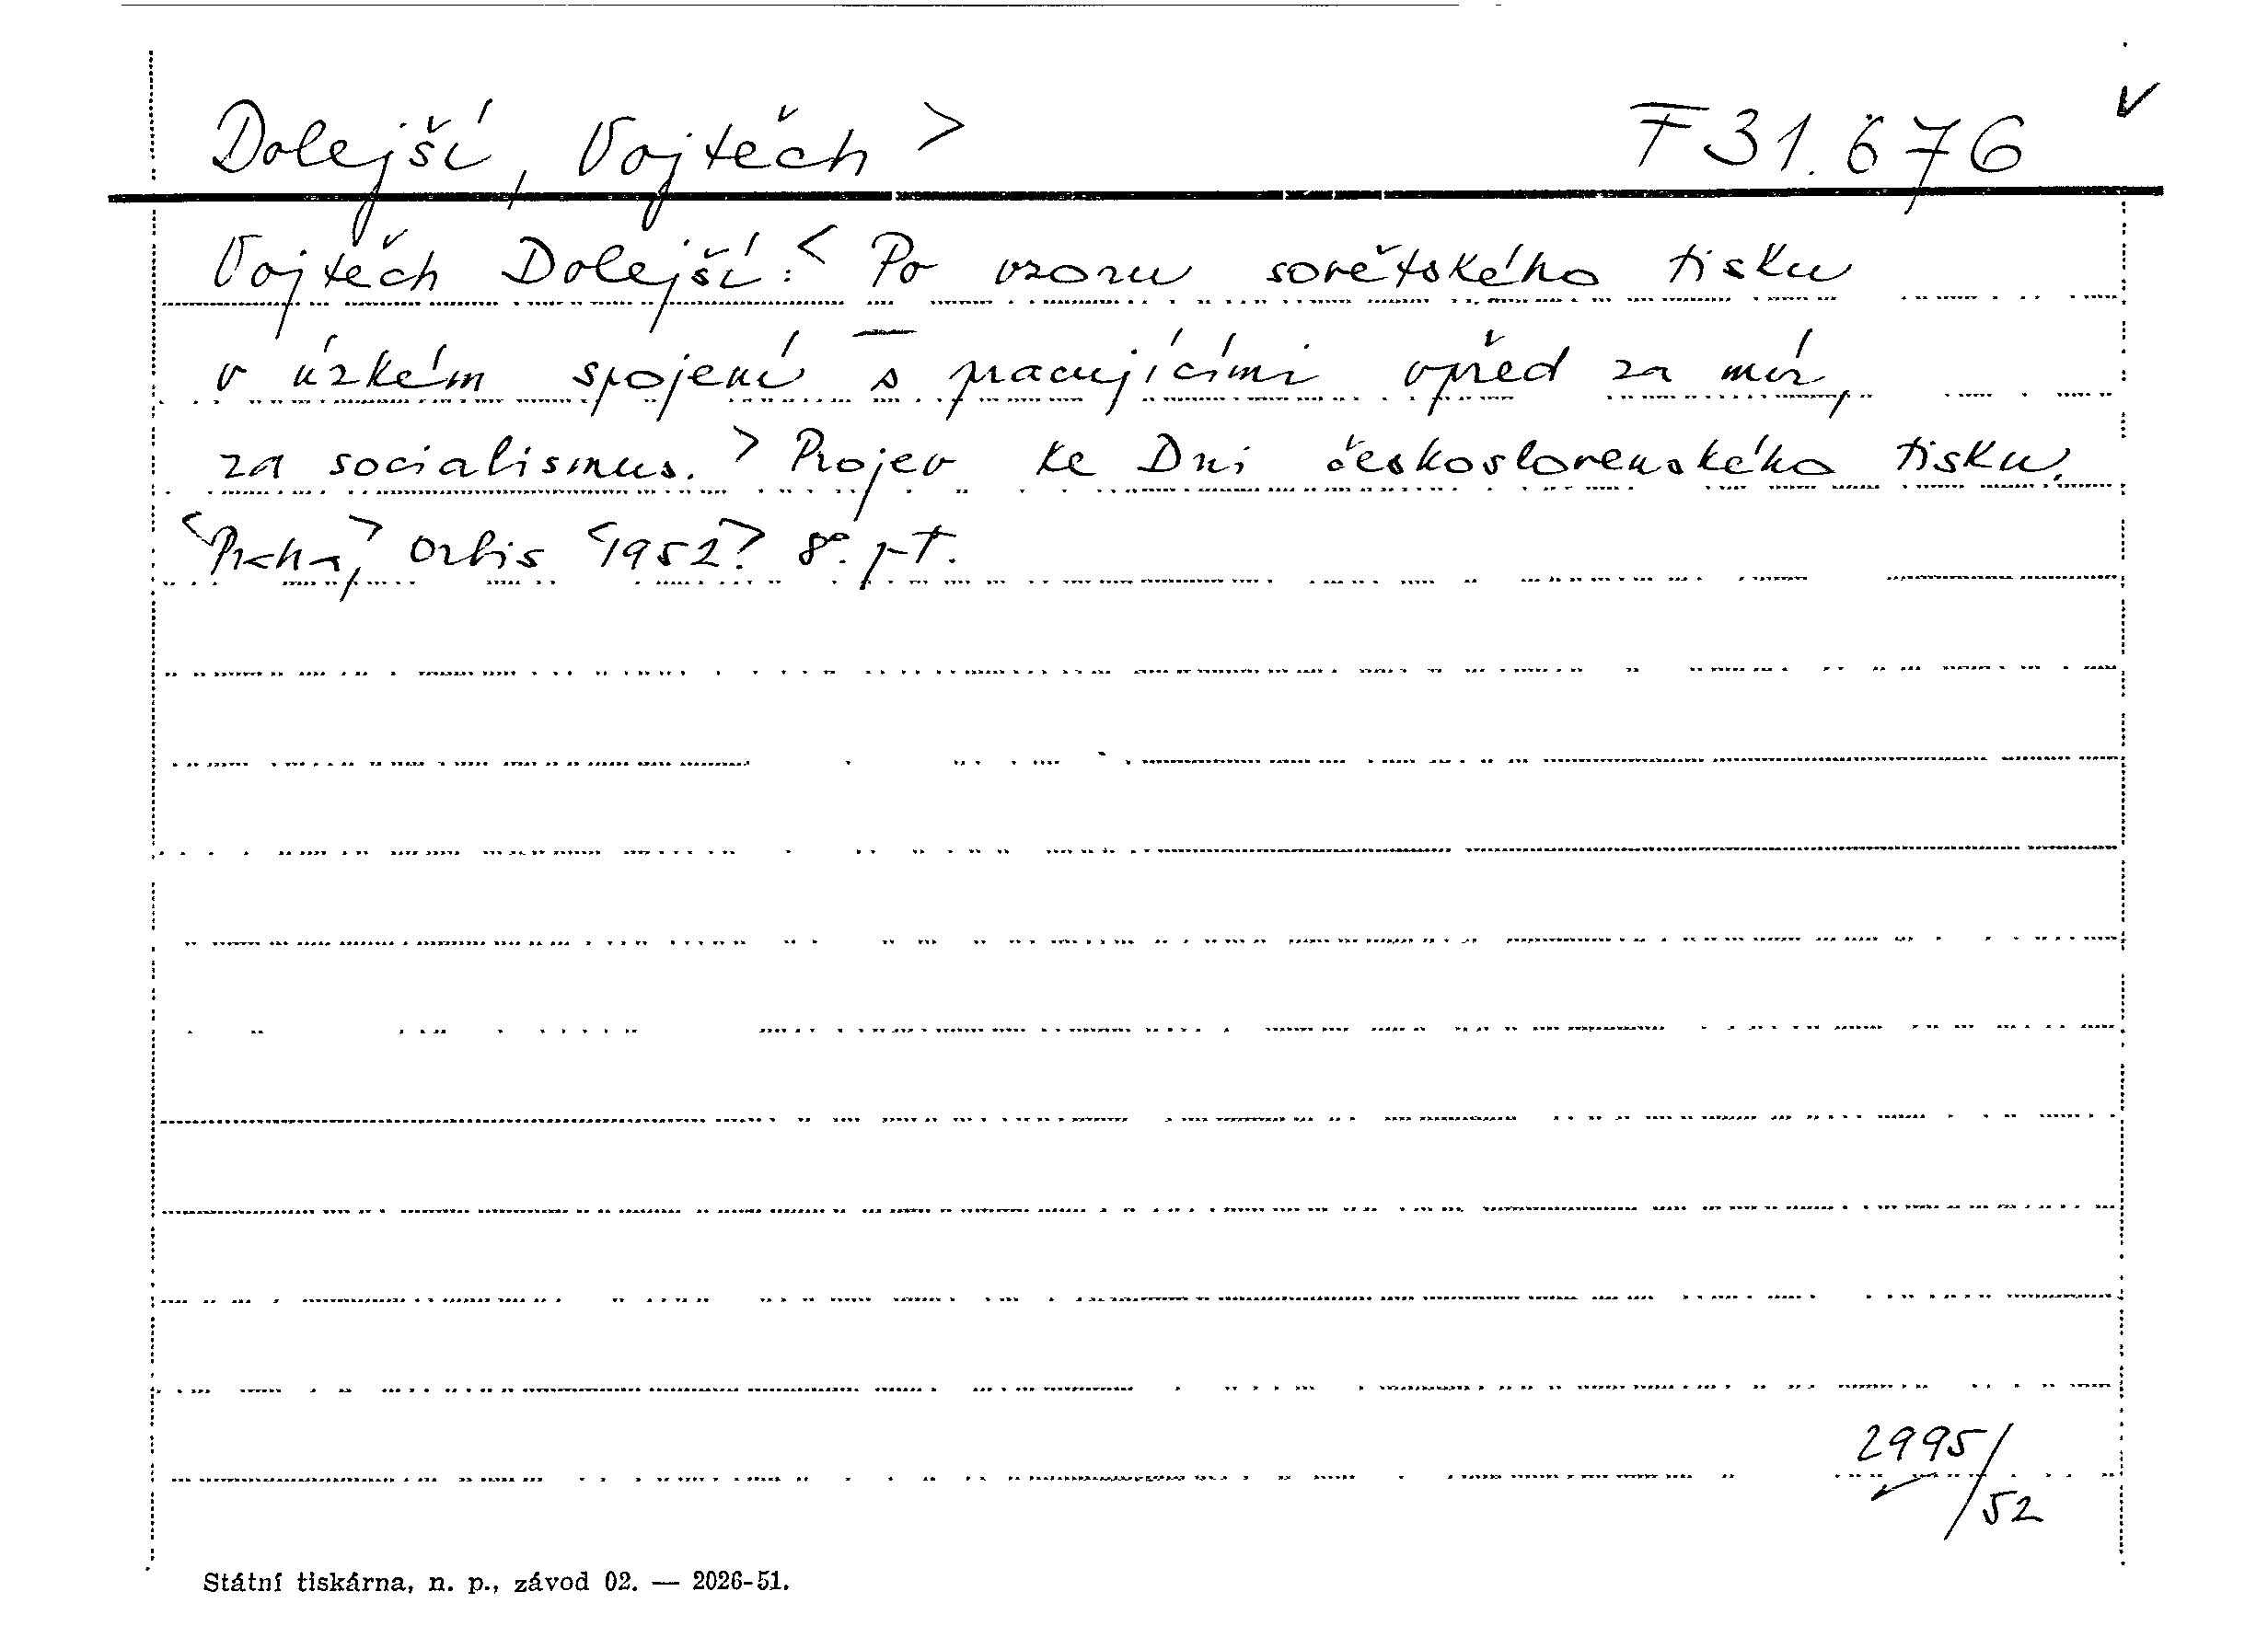 Dolejší, Vojtěch > F 31.676 v
Vojtěch Dolejší: < Po vzoru sovětského tisku
v úzkém spojení s pracujícími vpřed za mír,
za socialismus. > Projev ke Dni československého tisku.
<Praha,> Orbis <1952>. 8°. pt.
2995/52
Státní tiskárna, n. p., závod 02. — 2026-51.